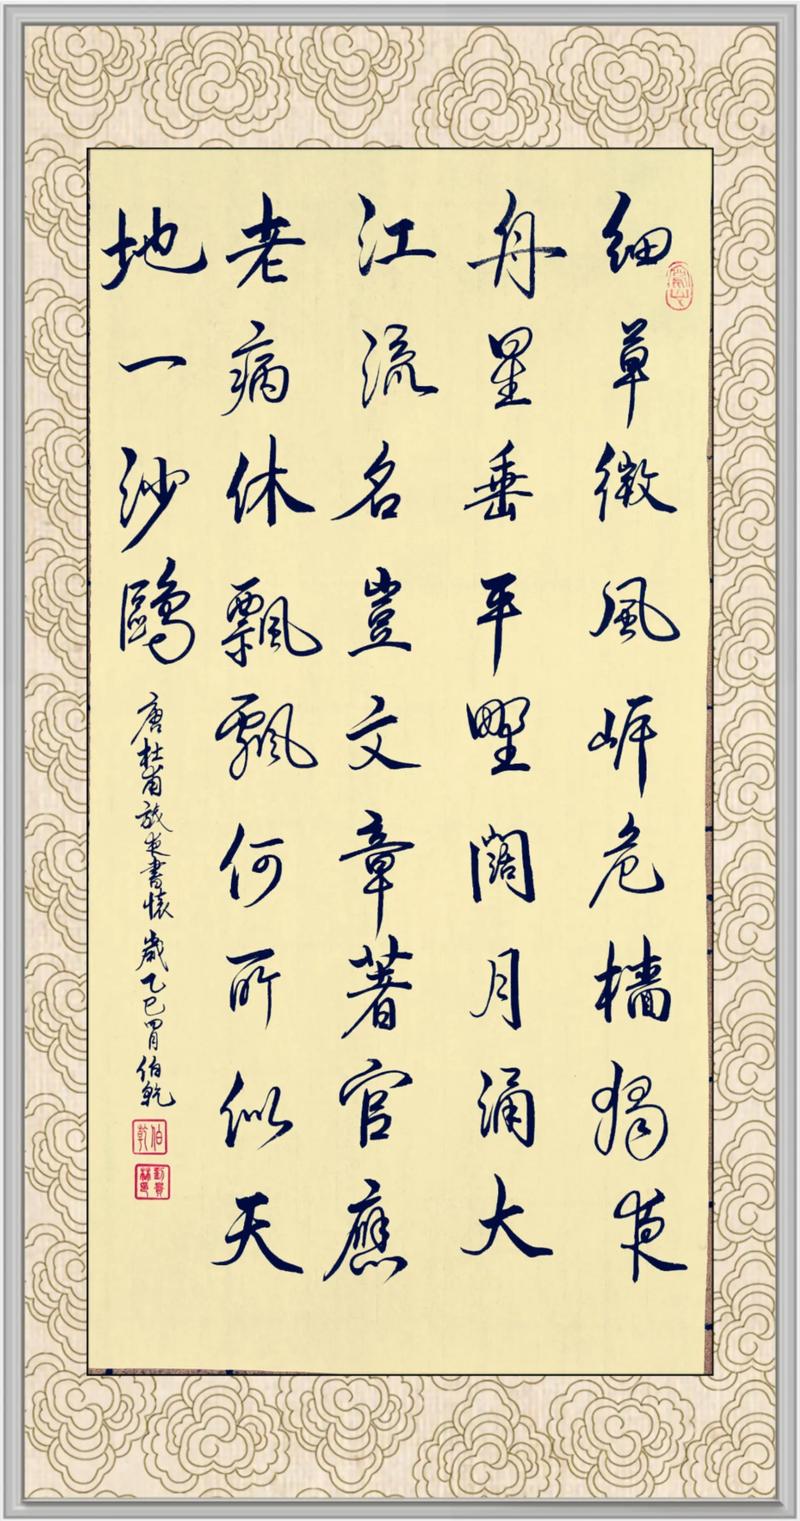 細草微風岸危檣獨夜
舟星垂平野闊月涌大
江流名豈文章著官應
老病休飄飄何所似天
地一沙鷗
唐杜甫旅夜書懷歲乙巳胃伯乾
伯乾